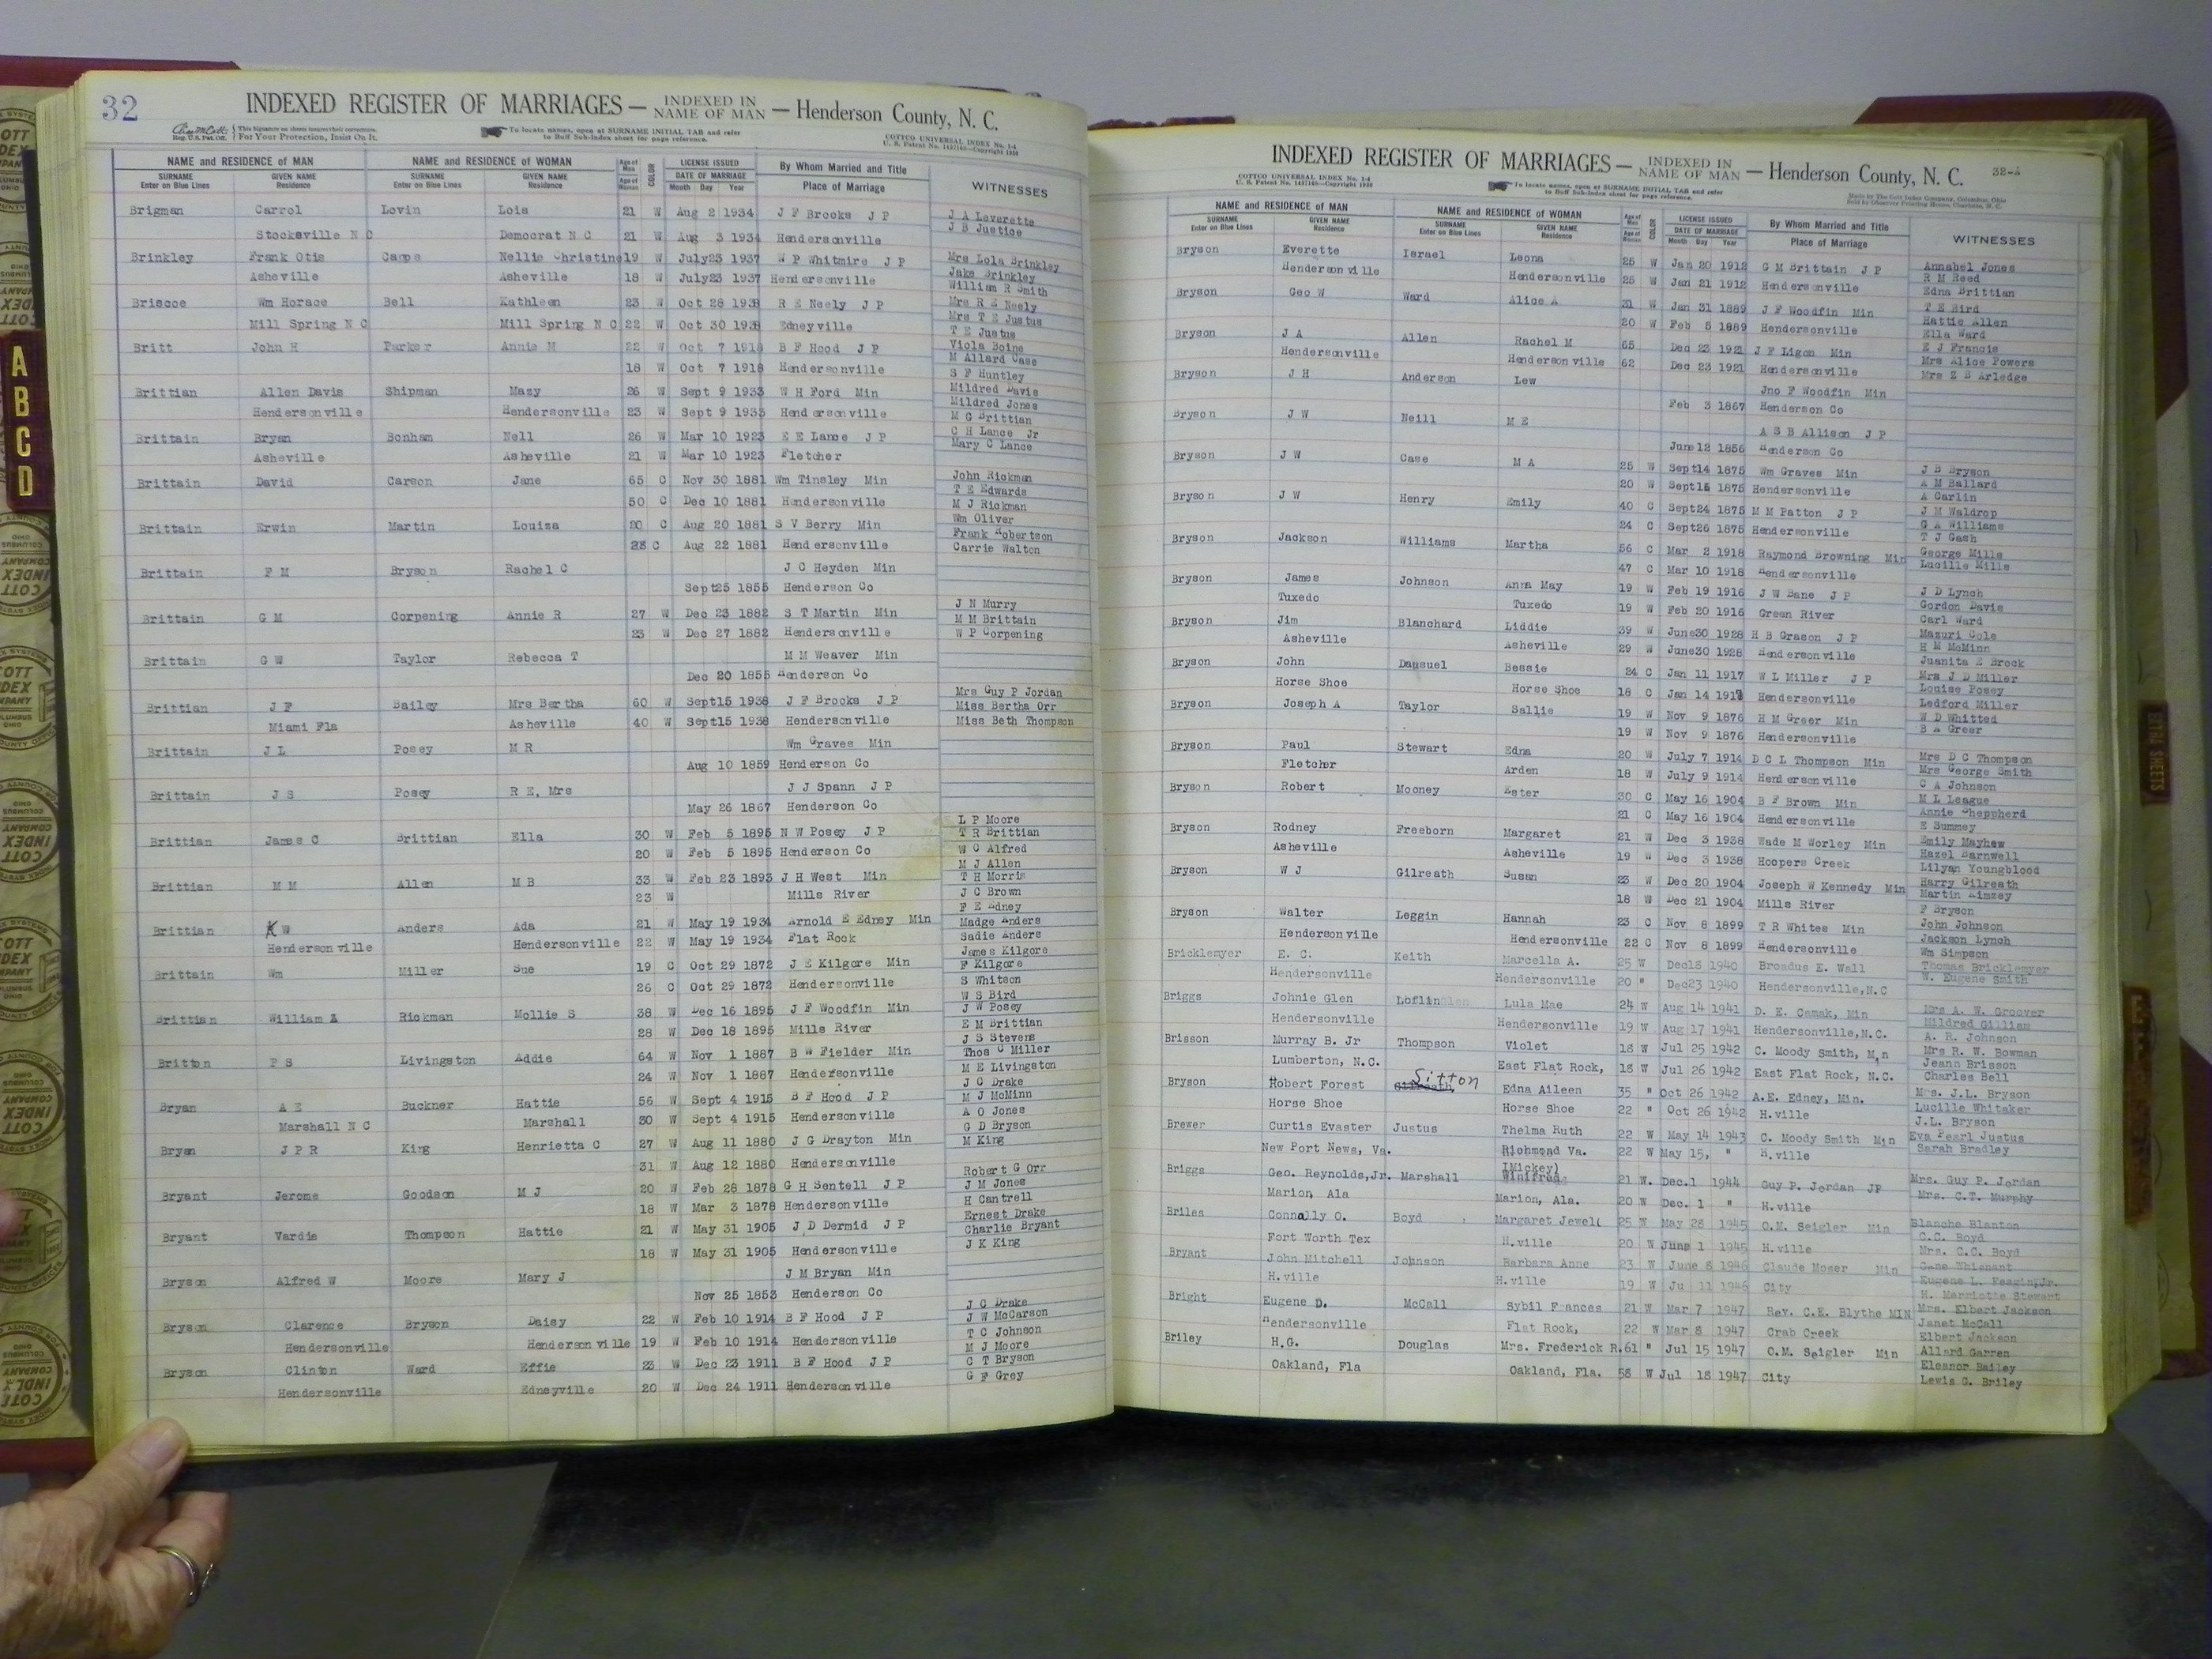 32
INDEXED REGISTER OF MARRIAGES — INDEXED IN NAME OF MAN — Henderson County, N. C.
This Signature on sheets insures their correctness. For Your Protection, Insist On It.
To locate names, open at SURNAME INITIAL TAB and refer to Buff Sub-Index sheet for page reference.
COTTCO UNIVERSAL INDEX No. 1-4
NAME and RESIDENCE of MAN NAME and RESIDENCE of WOMAN Age of Man Age of Woman COLOR LICENSE ISSUED DATE OF MARRIAGE By Whom Married and Title WITNESSES
SURNAME Enter on Blue Lines GIVEN NAME Residence SURNAME Enter on Blue Lines GIVEN NAME Residence Month Day Year Place of Marriage
Brigman Carrol Lovin Lois 21 W Aug 2 1934 J F Brooks J P J A Leverette
J B Justice
Stocksville N C Democrat N C 21 W Aug 3 1934 Hendersonville
Brinkley Frank Otis Capps Nellie Christine 19 W July 23 1937 W P Whitmire J P Mrs Lola Brinkley
Asheville Asheville 18 W July 23 1937 Hendersonville Jake Brinkley
William R Smith
Briscoe Wm Horace Bell Kathleen 23 W Oct 28 1938 R E Neely J P Mrs R E Neely
Mrs T E Justus
Mill Spring N C Mill Spring N C 22 W Oct 30 1938 Edneyville T E Justus
Britt John H Parker Annie M 22 W Oct 7 1918 B F Hood J P Viola Boine
M Allard Case
18 W Oct 7 1918 Hendersonville S F Huntley
Brittian Allen Davis Shipman Mazy 26 W Sept 9 1933 W H Ford Min Mildred Davis
Mildred Jones
Hendersonville Hendersonville 23 W Sept 9 1933 Hendersonville M G Brittian
Brittain Bryan Bonham Nell 26 W Mar 10 1923 E E Lance J P C H Lance Jr
Mary C Lance
Asheville Asheville 21 W Mar 10 1923 Fletcher
Brittain David Carson Jane 65 C Nov 30 1881 Wm Tinsley Min John Rickman
T E Edwards
50 C Dec 10 1881 Hendersonville M J Rickman
Brittain Erwin Martin Louiza 20 C Aug 20 1881 S V Berry Min Wm Oliver
Frank Robertson
C Aug 22 1881 Hendersonville Carrie Walton
Brittain F M Bryson Rachel C J C Heyden Min
Sept 25 1855 Henderson Co
Brittain G M Corpening Annie R 27 W Dec 23 1882 S T Martin Min J N Murry
M M Brittain
23 W Dec 27 1882 Hendersonville W P Corpening
Brittain G W Taylor Rebecca T M M Weaver Min
Dec 20 1855 Henderson Co
Brittian J F Bailey Mrs Bertha 60 W Sept 15 1938 J F Brooks J P Mrs Guy P Jordan
Miss Bertha Orr
Miami Fla Asheville 40 W Sept 15 1938 Hendersonville Miss Beth Thompson
Brittain J L Posey M R Wm Graves Min
Aug 10 1859 Henderson Co
Brittain J S Posey R E, Mrs J J Spann J P
May 26 1867 Henderson Co
Brittian James C Brittian Ella 30 W Feb 5 1895 N W Posey J P L P Moore
T R Brittian
20 W Feb 5 1895 Henderson Co W C Alfred
Brittian M M Allen M B 33 W Feb 23 1893 J H West Min M J Allen
T H Morris
23 W Mills River J C Brown
Brittian K W Anders Ada 21 W May 19 1934 Arnold E Edney Min F E Edney
Madge Anders
Hendersonville Hendersonville 22 W May 19 1934 Flat Rock Sadie Anders
Brittain Wm Miller Sue 19 C Oct 29 1872 J E Kilgore Min James Kilgore
F Kilgore
26 C Oct 29 1872 Hendersonville S Whitson
Brittian William A Rickman Mollie S 38 W Dec 16 1895 J F Woodfin Min W S Bird
J W Posey
28 W Dec 18 1895 Mills River E M Brittian
Britton P S Livingston Addie 64 W Nov 1 1887 B W Fielder Min J S Stevens
Thos C Miller
24 W Nov 1 1887 Hendersonville M E Livingston
Bryan A E Buckner Hattie 56 W Sept 4 1915 B F Hood J P J C Drake
M J McMinn
Marshall N C Marshall 30 W Sept 4 1915 Hendersonville A O Jones
Bryan J P R King Henrietta C 27 W Aug 11 1880 J G Drayton Min G D Bryson
M King
31 W Aug 12 1880 Hendersonville
Bryant Jerome Goodson M J 20 W Feb 28 1878 G H Sentell J P Robert G Orr
J M Jones
18 W Mar 3 1878 Hendersonville H Cantrell
Bryant Vardie Thompson Hattie 21 W May 31 1905 J D Dermid J P Ernest Drake
Charlie Bryant
18 W May 31 1905 Hendersonville J K King
Bryson Alfred W Moore Mary J J M Bryan Min
Nov 25 1853 Henderson Co
Bryson Clarence Bryson Daisy 22 W Feb 10 1914 B F Hood J P J C Drake
J W McCarson
Hendersonville Hendersonville 19 W Feb 10 1914 Hendersonville T C Johnson
Bryson Clinton Ward Effie 23 W Dec 23 1911 B F Hood J P M J Moore
C T Bryson
Hendersonville Edneyville 20 W Dec 24 1911 Hendersonville G F Grey
INDEXED REGISTER OF MARRIAGES — INDEXED IN NAME OF MAN — Henderson County, N. C. 32-A
COTTCO UNIVERSAL INDEX No. 1-4
To locate names, open at SURNAME INITIAL TAB and refer to Buff Sub-Index sheet for page reference.
Made by The Cott Index Company, Columbus, Ohio
Sold by Observer Printing House, Charlotte, N. C.
NAME and RESIDENCE of MAN NAME and RESIDENCE of WOMAN Age of Man Age of Woman COLOR LICENSE ISSUED DATE OF MARRIAGE By Whom Married and Title WITNESSES
SURNAME Enter on Blue Lines GIVEN NAME Residence SURNAME Enter on Blue Lines GIVEN NAME Residence Month Day Year Place of Marriage
Bryson Everette Israel Leona 26 W Jan 20 1912 G M Brittain J P Annabel Jones
R M Reed
Hendersonville Hendersonville 25 W Jan 21 1912 Hendersonville Edna Brittian
Bryson Geo W Ward Alice A 21 W Jan 31 1889 J F Woodfin Min T E Bird
Hattie Allen
20 W Feb 5 1889 Hendersonville Ella Ward
Bryson J A Allen Rachel M 65 Dec 23 1921 J F Ligon Min E J Francis
Mrs Alice Powers
Hendersonville Hendersonville 62 Dec 23 1921 Hendersonville Mrs Z B Arledge
Bryson J H Anderson Lew Jno F Woodfin Min
Feb 3 1867 Henderson Co
Bryson J W Neill M E A S B Allison J P
June 12 1856 Henderson Co
Bryson J W Case M A 25 W Sept 14 1875 Wm Graves Min J B Bryson
A M Ballard
20 W Sept 15 1875 Hendersonville A Carlin
Bryson J W Henry Emily 40 C Sept 24 1875 M M Patton J P J M Waldrop
G A Williams
24 C Sept 26 1875 Hendersonville T J Gash
Bryson Jackson Williams Martha 56 C Mar 2 1918 Raymond Browning Min George Mills
Lucille Mills
47 C Mar 10 1918 Hendersonville
Bryson James Johnson Anna May 19 W Feb 19 1916 J W Bane J P J D Lynch
Gordon Davis
Tuxedo Tuxedo 19 W Feb 20 1916 Green River Carl Ward
Bryson Jim Blanchard Liddie 39 W June 30 1928 H B Grason J P Mazuri Cole
H M McMinn
Asheville Asheville 29 W June 30 1928 Hendersonville Juanita E Brock
Bryson John Dausuel Bessie 24 C Jan 11 1917 W L Miller J P Mrs J D Miller
Louise Posey
Horse Shoe Horse Shoe 18 C Jan 14 1917 Hendersonville Ledford Miller
Bryson Joseph A Taylor Sallie 19 W Nov 9 1876 H M Greer Min W D Whitted
B A Greer
19 W Nov 9 1876 Hendersonville
Bryson Paul Stewart Edna 20 W July 7 1914 D C L Thompson Min Mrs D C Thompson
Mrs George Smith
Fletcher Arden 18 W July 9 1914 Hendersonville C A Johnson
Bryson Robert Mooney Ester 30 C May 16 1904 B F Brown Min M L League
Annie Sheppherd
21 C May 16 1904 Hendersonville E Summey
Bryson Rodney Freeborn Margaret 21 W Dec 3 1938 Wade M Worley Min Emily Mayhew
Hazel Barnwell
Asheville Asheville 19 W Dec 3 1938 Hoopers Creek Lilyan Youngblood
Bryson W J Gilreath Susan 23 W Dec 20 1904 Joseph W Kennedy Min Harry Gilreath
Martin Kimzey
18 W Dec 21 1904 Mills River F Bryson
Bryson Walter Leggin Hannah 23 C Nov 8 1899 T R Whites Min John Johnson
Jackson Lynch
Hendersonville Hendersonville 22 C Nov 8 1899 Hendersonville Wm Simpson
Bricklemyer E. C. Keith Marcella A. 25 W Dec 18 1940 Broadus E. Wall Thomas Bricklemyer
W. Eugene Smith
Hendersonville Hendersonville 20 " Dec 23 1940 Hendersonville, N.C
Briggs Johnie Glen Loflin Lula Mae 24 W Aug 14 1941 D. E. Camak, Min Mrs A. W. Groover
Mildred Gilliam
Hendersonville Hendersonville 19 W Aug 17 1941 Hendersonville, N.C. A. R. Johnson
Brisson Murray B. Jr Thompson Violet 18 W Jul 25 1942 C. Moody Smith, Min Mrs R. W. Bowman
Jeann Brisson
Lumberton, N.C. East Flat Rock, 18 W Jul 26 1942 East Flat Rock, N.C. Charles Bell
Bryson Robert Forest Sitton Edna Aileen 35 " Oct 26 1942 A.E. Edney, Min. Mrs. J.L. Bryson
Lucille Whitaker
Horse Shoe Horse Shoe 22 " Oct 26 1942 H.ville J.L. Bryson
Brewer Curtis Evaster Justus Thelma Ruth 22 W May 14 1943 C. Moody Smith Min Eva Pearl Justus
Sarah Bradley
New Port News, Va. Richmond Va. 22 W May 15, " H.ville
Briggs Geo. Reynolds, Jr. Marshall (Mickey) Winifred 21 W. Dec. 1 1944 Guy P. Jordan JP Mrs. Guy P. Jordan
Mrs. C.T. Murphy
Marion, Ala Marion, Ala. 20 W Dec. 1 " H.ville
Briles Connally O. Boyd Margaret Jewell 25 W May 28 1945 O.M. Seigler Min Blanche Blanton
C.C. Boyd
Fort Worth Tex H.ville 20 W June 1 1945 H.ville Mrs. C.C. Boyd
Bryant John Mitchell Johnson Barbara Anne 23 W June 8 1946 Claude Moser Min Gene Whisnant
Eugene L. Feagin, Jr.
H.ville H.ville 19 W Ju 11 1946 City H. Marriotte Stewart
Bright Eugene D. McCall Sybil Frances 21 W Mar 7 1947 Rev. C.E. Blythe MIN Mrs. Elbert Jackson
Janet McCall
Hendersonville Flat Rock, 22 W Mar 8 1947 Crab Creek Elbert Jackson
Briley H.G. Douglas Mrs. Frederick R. 61 " Jul 15 1947 O.M. Seigler Min Allard Garren
Eleanor Bailey
Oakland, Fla Oakland, Fla. 58 W Jul 18 1947 City Lewis G. Briley
A
B
C
D